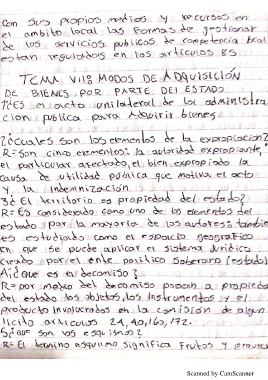 con sus propios medios y recursos en
el ambito local las formas de gestionar
de los servicios publicos de competencia local
estan regulados en los articulos 85
TEMA VIII MODOS DE ADQUISICIÓN
DE BIENES POR PARTE DEL ESTADO
1¿ES el acto unilateral de la administra
cion publica para Adquirir bienes
2¿cuales son los elementos de la expropiacion?
R=Son cinco elementos: la autoridad expropiante,
el particular afectado, el bien expropiado la
causa de utilidad publica que motiva el acto
y la indemnización
3¿ El territorio es propiedad del estado?
R=ES considerado como uno de los elementos del
estado por la mayoria de los autores tambie
es estudiado como el espacio geografico
en que se puede aplicar el sistema Juridico
creado por el ente politico soberano (estado)
4¿que es el decomiso?
R=por medio del decomiso pasan a propiedad
del estado los objetos, los instrumentos y el
producto involucrados en la comision de algun
ilicito articulos 24, 40, 160, 172.
5¿que son los esquismos?
R=El termino esquismo significa frutos y provec
Scanned by CamScanner